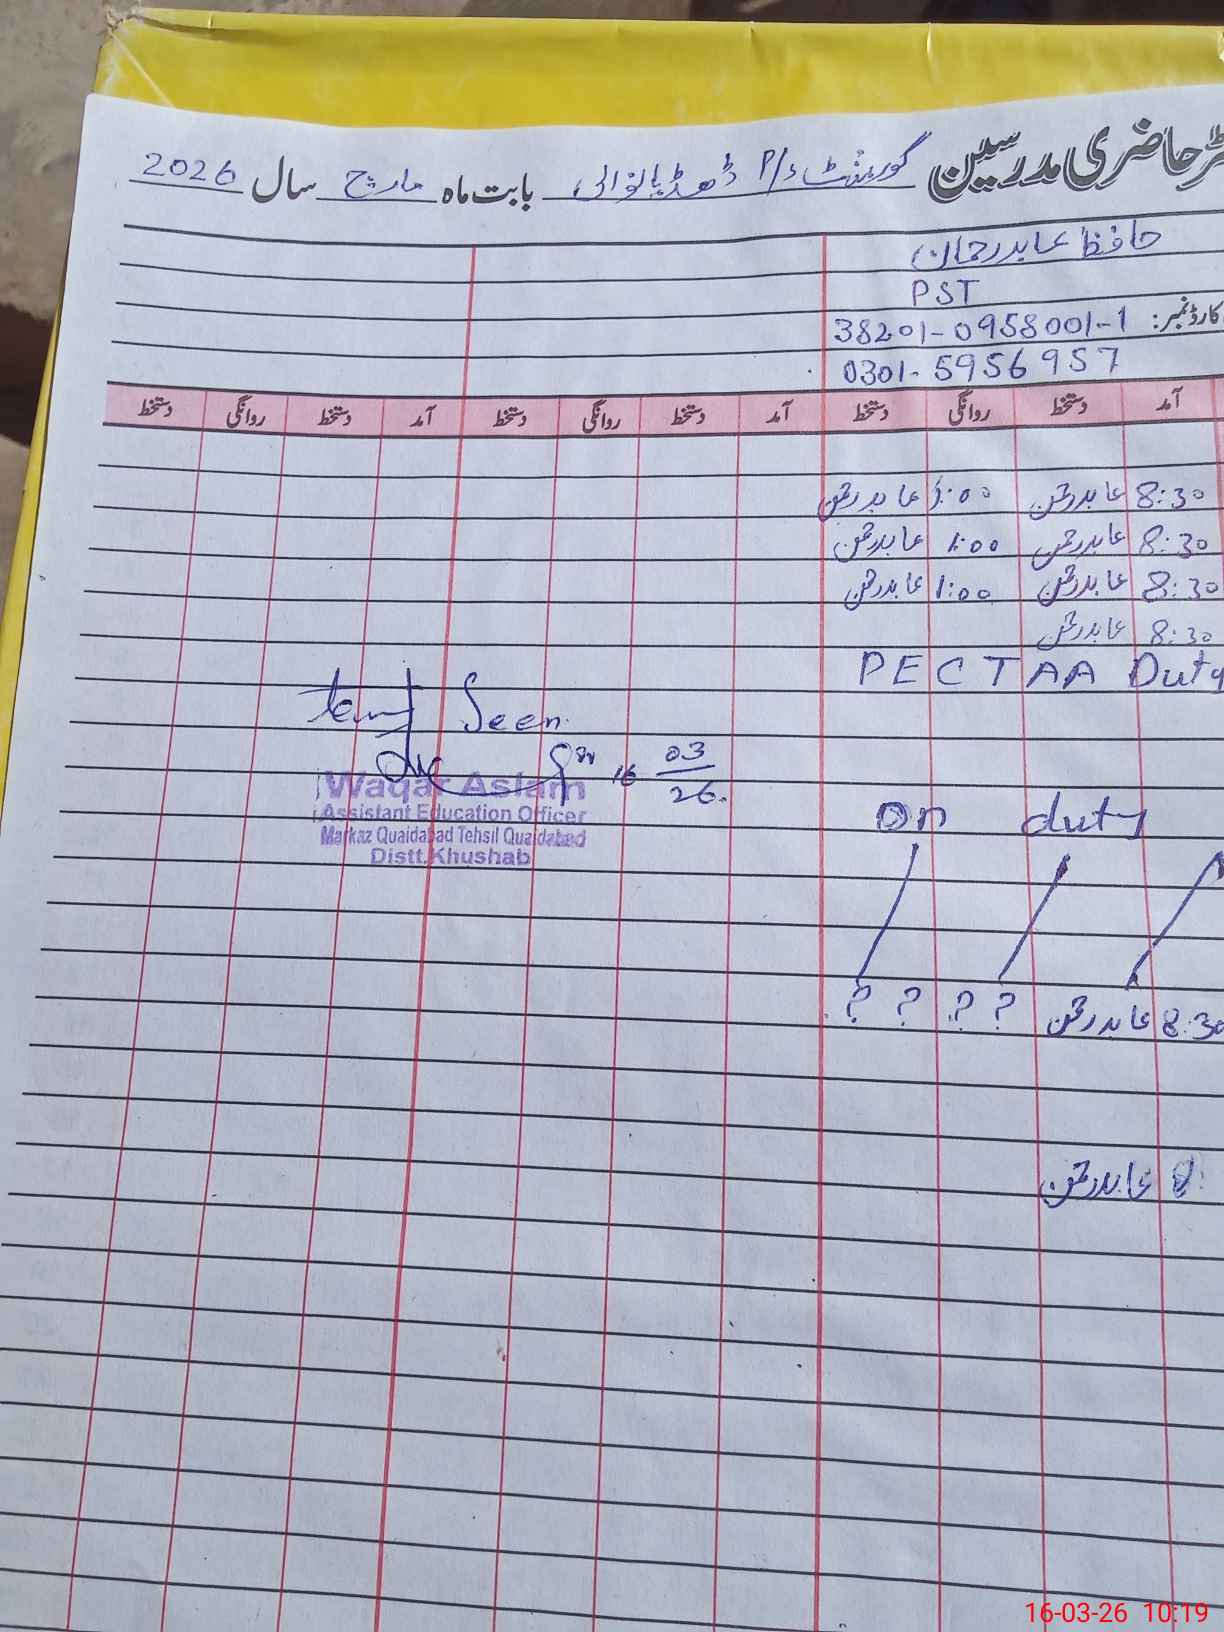 حاضری مدرسین گورنمنٹ P/s ڈھڈیانوالی بابت ماہ مارچ سال 2026
حافظ عابد رحمان
PST
کارڈ نمبر: 38201-0958001-1
0301-5956957
آمد دستخط روانگی دستخط آمد دستخط روانگی دستخط آمد دستخط روانگی دستخط
8:30 عابد رحمٰن 1:00 عابد رحمٰن
8:30 عابد رحمٰن 1:00 عابد رحمٰن
8:30 عابد رحمٰن 1:00 عابد رحمٰن
8:30 عابد رحمٰن
PECTAA Duty
Seen
16 03/26.
Waqar Aslam
Assistant Education Officer
Markaz Quaidabad Tehsil Quaidabad
Distt.Khushab
on duty
8:30 عابد رحمٰن ? ? ? ?
8: عابد رحمٰن
16-03-26 10:19